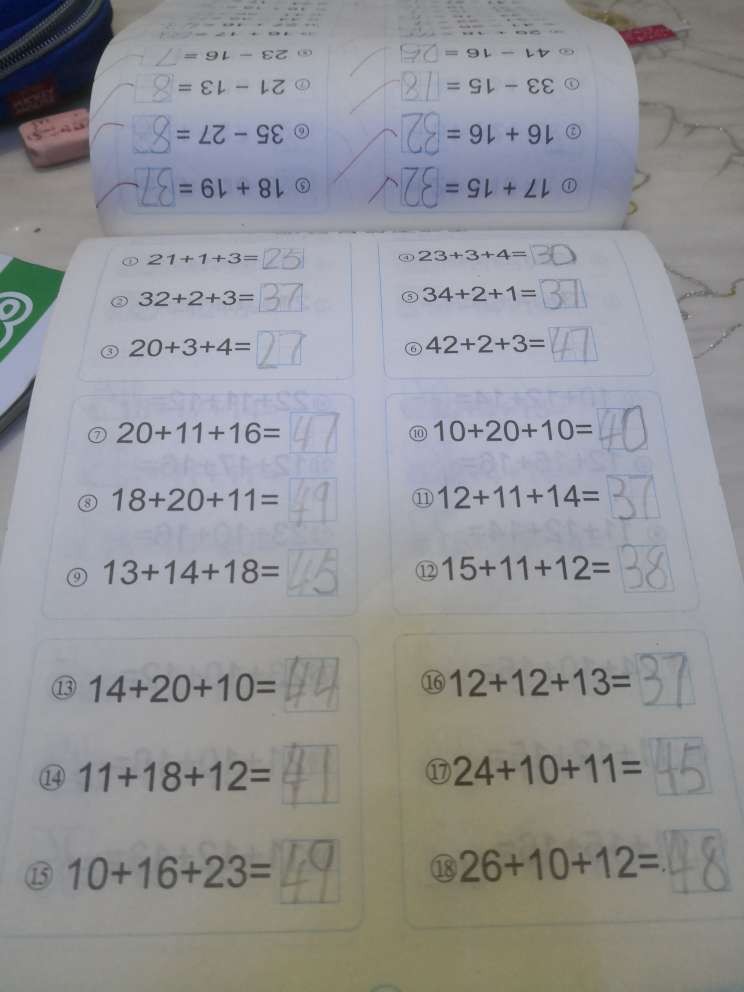 ① 17 + 15 = 32 ⑤ 18 + 19 = 37
② 16 + 16 = 32 ⑥ 35 - 27 = 8
③ 33 - 15 = 18 ⑦ 21 - 13 = 8
④ 41 - 16 = 25 ⑧ 23 - 16 = 7
① 21+1+3= 25 ④ 23+3+4= 30
② 32+2+3= 37 ⑤ 34+2+1= 37
③ 20+3+4= 27 ⑥ 42+2+3= 47
⑦ 20+11+16= 47 ⑩ 10+20+10= 40
⑧ 18+20+11= 49 ⑪ 12+11+14= 37
⑨ 13+14+18= 45 ⑫ 15+11+12= 38
⑬ 14+20+10= 44 ⑯ 12+12+13= 37
⑭ 11+18+12= 41 ⑰ 24+10+11= 45
⑮ 10+16+23= 49 ⑱ 26+10+12= 48